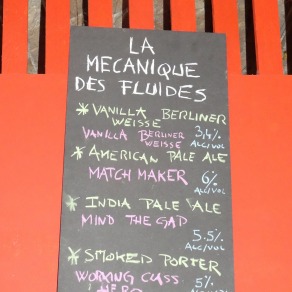 LA
MECANIQUE
DES FLUIDES
* VANILLA BERLINER
WEISSE
VANILLA BERLINER 3,4%
WEISSE ALC/VOL
* AMERICAN PALE ALE
MATCH MAKER 6%
ALC/VOL
* INDIA PALE ALE
MIND THE GAP
5.5%
ALC/VOL
* SMOKED PORTER
WORKING CLASS 5%
HERO ALC/VOL